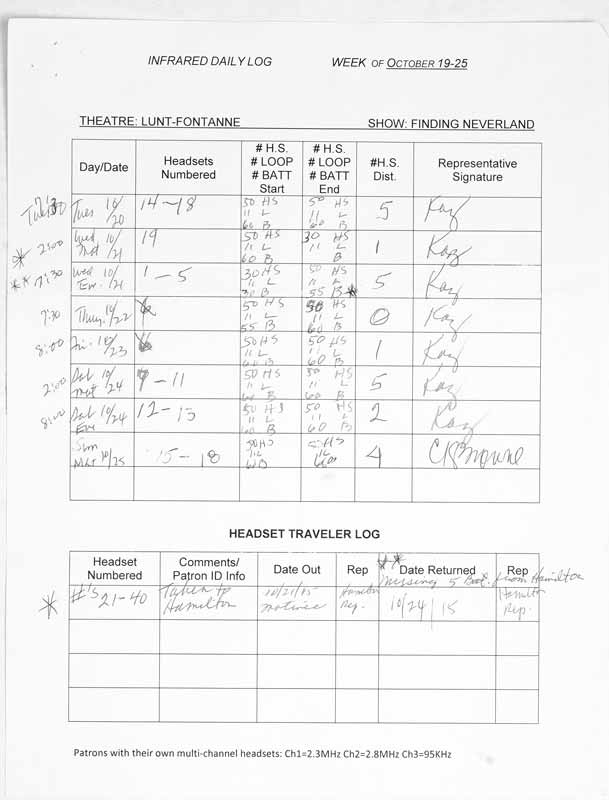 INFRARED DAILY LOG WEEK OF OCTOBER 19-25
THEATRE: LUNT-FONTANNE SHOW: FINDING NEVERLAND
Day/Date Headsets Numbered # H.S. # LOOP # BATT Start # H.S. # LOOP # BATT End #H.S. Dist. Representative Signature
Tues 7:30 Tues 10/20 14-18 50 HS 11 L 60 B 50 HS 11 L 60 B 5 Kaz
* 2:00 Wed Mat 10/21 19 50 HS 11 L 60 B 30 HS 11 L B 1 Kaz
** 7:30 Wed Ev. 10/21 1-5 30 HS 11 L 30 B 50 HS 11 L 55 B* 5 Kaz
7:30 Thur. 10/22 50 HS 11 L 55 B 50 HS 11 L 60 B 0 Kaz
8:00 Fri. 10/23 50 HS 11 L 60 B 50 HS 11 L 60 B 1 Kaz
2:00 Sat Mat 10/24 7-11 50 HS 11 L 60 B 50 HS 11 L 60 B 5 Kaz
8:00 Sat Eve 10/24 12-13 50 HS 11 L 60 B 50 HS 11 L 60 B 2 Kaz
Sun Mat 10/25 15-18 50HS 11L 60B 50HS 11L 60B 4 Browne
HEADSET TRAVELER LOG
Headset Numbered Comments/ Patron ID Info Date Out Rep Date Returned Rep
** Missing 5 Batt. from Hamilton
* #'s 21-40 Taken to Hamilton 10/21/15 matinee Hamilton Rep. 10/24/15 Hamilton Rep.
Patrons with their own multi-channel headsets: Ch1=2.3MHz Ch2=2.8MHz Ch3=95KHz